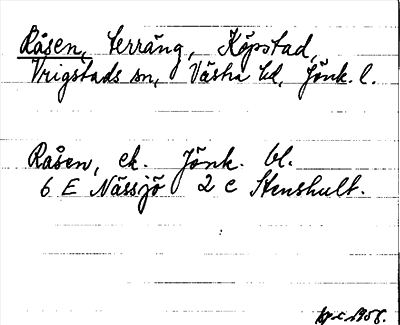 Råsen, terräng, Köpstad,
Vrigstads sn, Västra hd, Jönk. l.
Råsen, ek. Jönk. bl.
6 E Nässjö 2 c Stenshult.
1958.